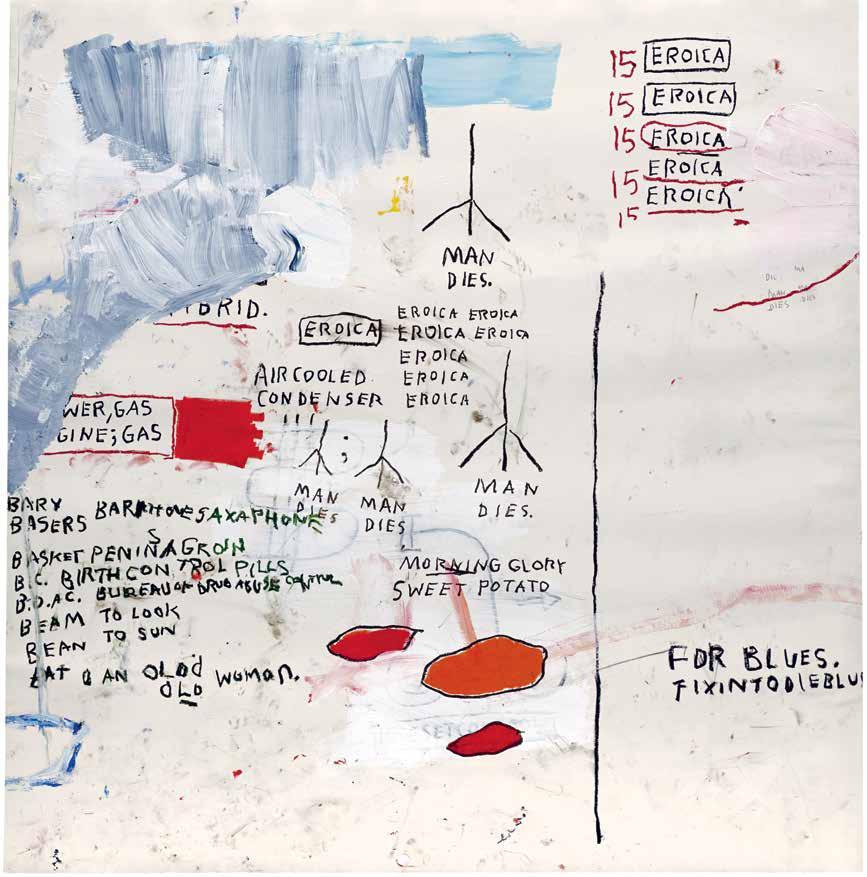 15 EROICA
15 EROICA
15 EROICA
15 EROICA
15 EROICA
MAN
DIES.
MAN
DIES
BRID.
EROICA
EROICA EROICA
EROICA EROICA
EROICA
EROICA
EROICA
AIRCOOLED
CONDENSER
WER, GAS
GINE; GAS
;
MAN
DIES
MAN
DIES
MAN
DIES.
BARY
BASERS BARITONE SAXAPHONE
BASKET PENINAGROIN
S
B.C. BIRTH CONTROL PILLS
B.D.A.C. BUREAU OF DRUG ABUSE CONTROL
BEAM TO LOOK
BEAN TO SUN
AN OLD
OLD WOMAN.
MORNING GLORY
SWEET POTATO
FOR BLUES.
FIXINTODIEBLU